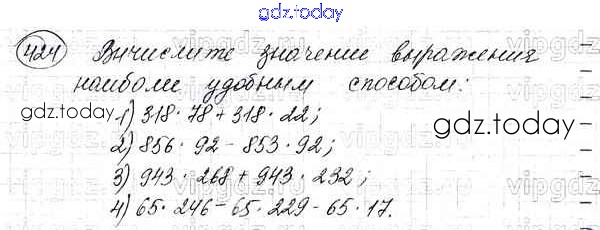 gdz.today
424 Вичислите значение выражения
наиболее удобным способом:
gdz.today
1) 318 · 78 + 318 · 22;
gdz.today
2) 856 · 92 - 853 · 92;
3) 943 · 268 + 943 · 232;
4) 65 · 246 - 65 · 229 - 65 · 17.